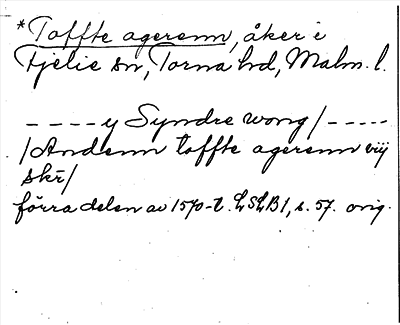 *Toffte agerenn, åker i
Fjelie sn, Torna hd, Malm. l.
- - - - y Syndre wong / - - - - -
/ Andenn toffte agerenn viij
skr /
förra delen av 1570-t. LSLB 1, s. 57. orig.